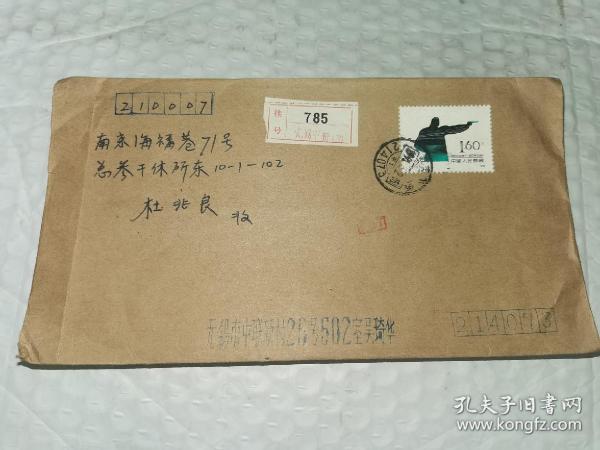 210007
挂号
785
1.60
中国人民邮政
南京海福巷71号
总参干休所东10-1-102
杜兆良 收
无锡市中联新村26号502室吴琦华
214073
孔夫子旧书网
www.kongfz.com